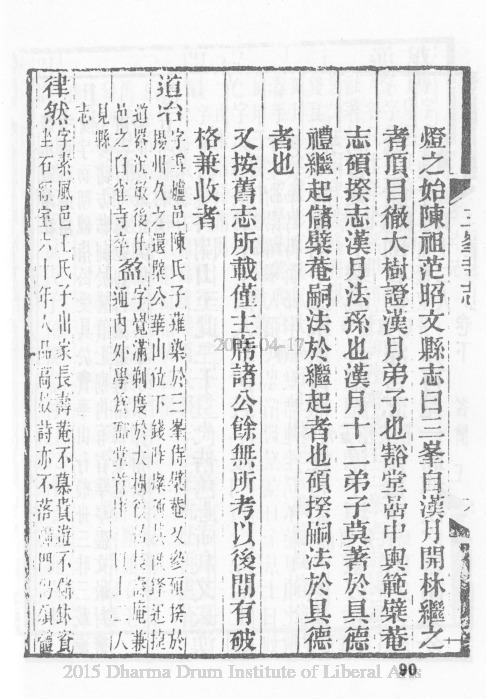 三峯寺志
燈之始陳祖范昭文縣志曰三峯自漢月開林繼之
者頂目徹大樹證漢月弟子也豁堂嵒中與範檗菴
志碩揆志漢月法孫也漢月十二弟子莫著於具德
禮繼起儲檗菴嗣法於繼起者也碩揆嗣法於具德
者也
又按舊志所載僅主席諸公餘無所考以後間有破
格兼收者
道冶字雪爐邑陳氏子薙染於三峯侍檗菴又參碩揆於
揚州久之還檗公華山位下錢
道器沉敏後住 字覺滿剃度於大樹 兼
邑之白雀寺卒 通內外學 豁堂首 二人
見縣
志
律然字素風邑王氏子出家長壽菴不慕貴遊不備鉢資
坐石 室六十年人品高故詩亦不落禪門偈頌體
90
2015-04-17
2015 Dharma Drum Institute of Liberal Arts